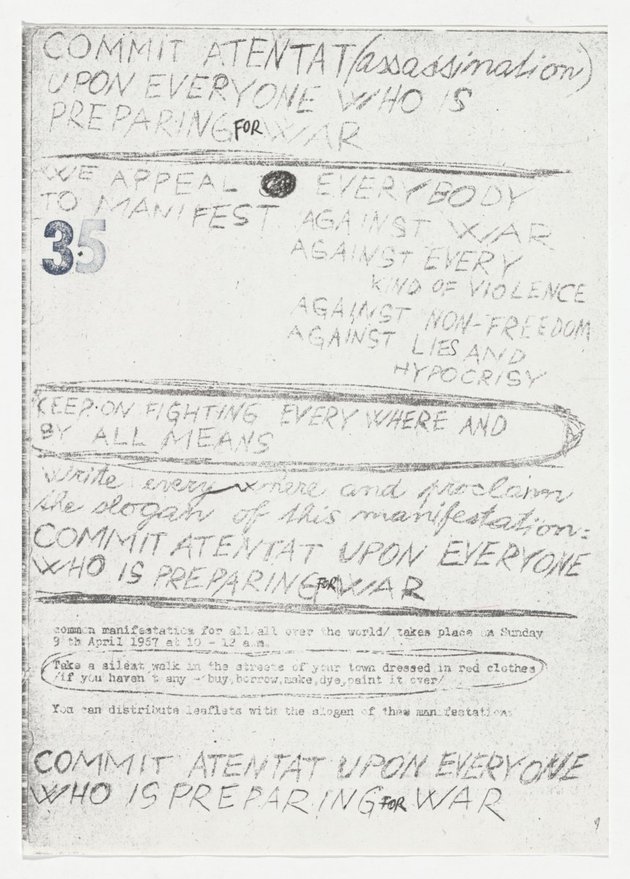 COMMIT ATENTAT (assassination)
UPON EVERYONE WHO IS
PREPARING FOR WAR
WE APPEAL EVERYBODY
TO MANIFEST AGAINST WAR
35
AGAINST EVERY
KIND OF VIOLENCE
AGAINST NON-FREEDOM
AGAINST LIES AND
HYPOCRISY
KEEP ON FIGHTING EVERY WHERE AND
BY ALL MEANS
Write every where and proclaim
the slogan of this manifestation:
COMMIT ATENTAT UPON EVERYONE
WHO IS PREPARING FOR WAR
common manifestation for all all over the world/ takes place on Sunday
9 th April 1967 at 10 - 12 a.m.
Take a silent walk in the streets of your town dressed in red clothes
/if you haven t any - buy,borrow,make,dye,paint it over/
You can distribute leaflets with the slogen of thes manifestation
COMMIT ATENTAT UPON EVERYONE
WHO IS PREPARING FOR WAR